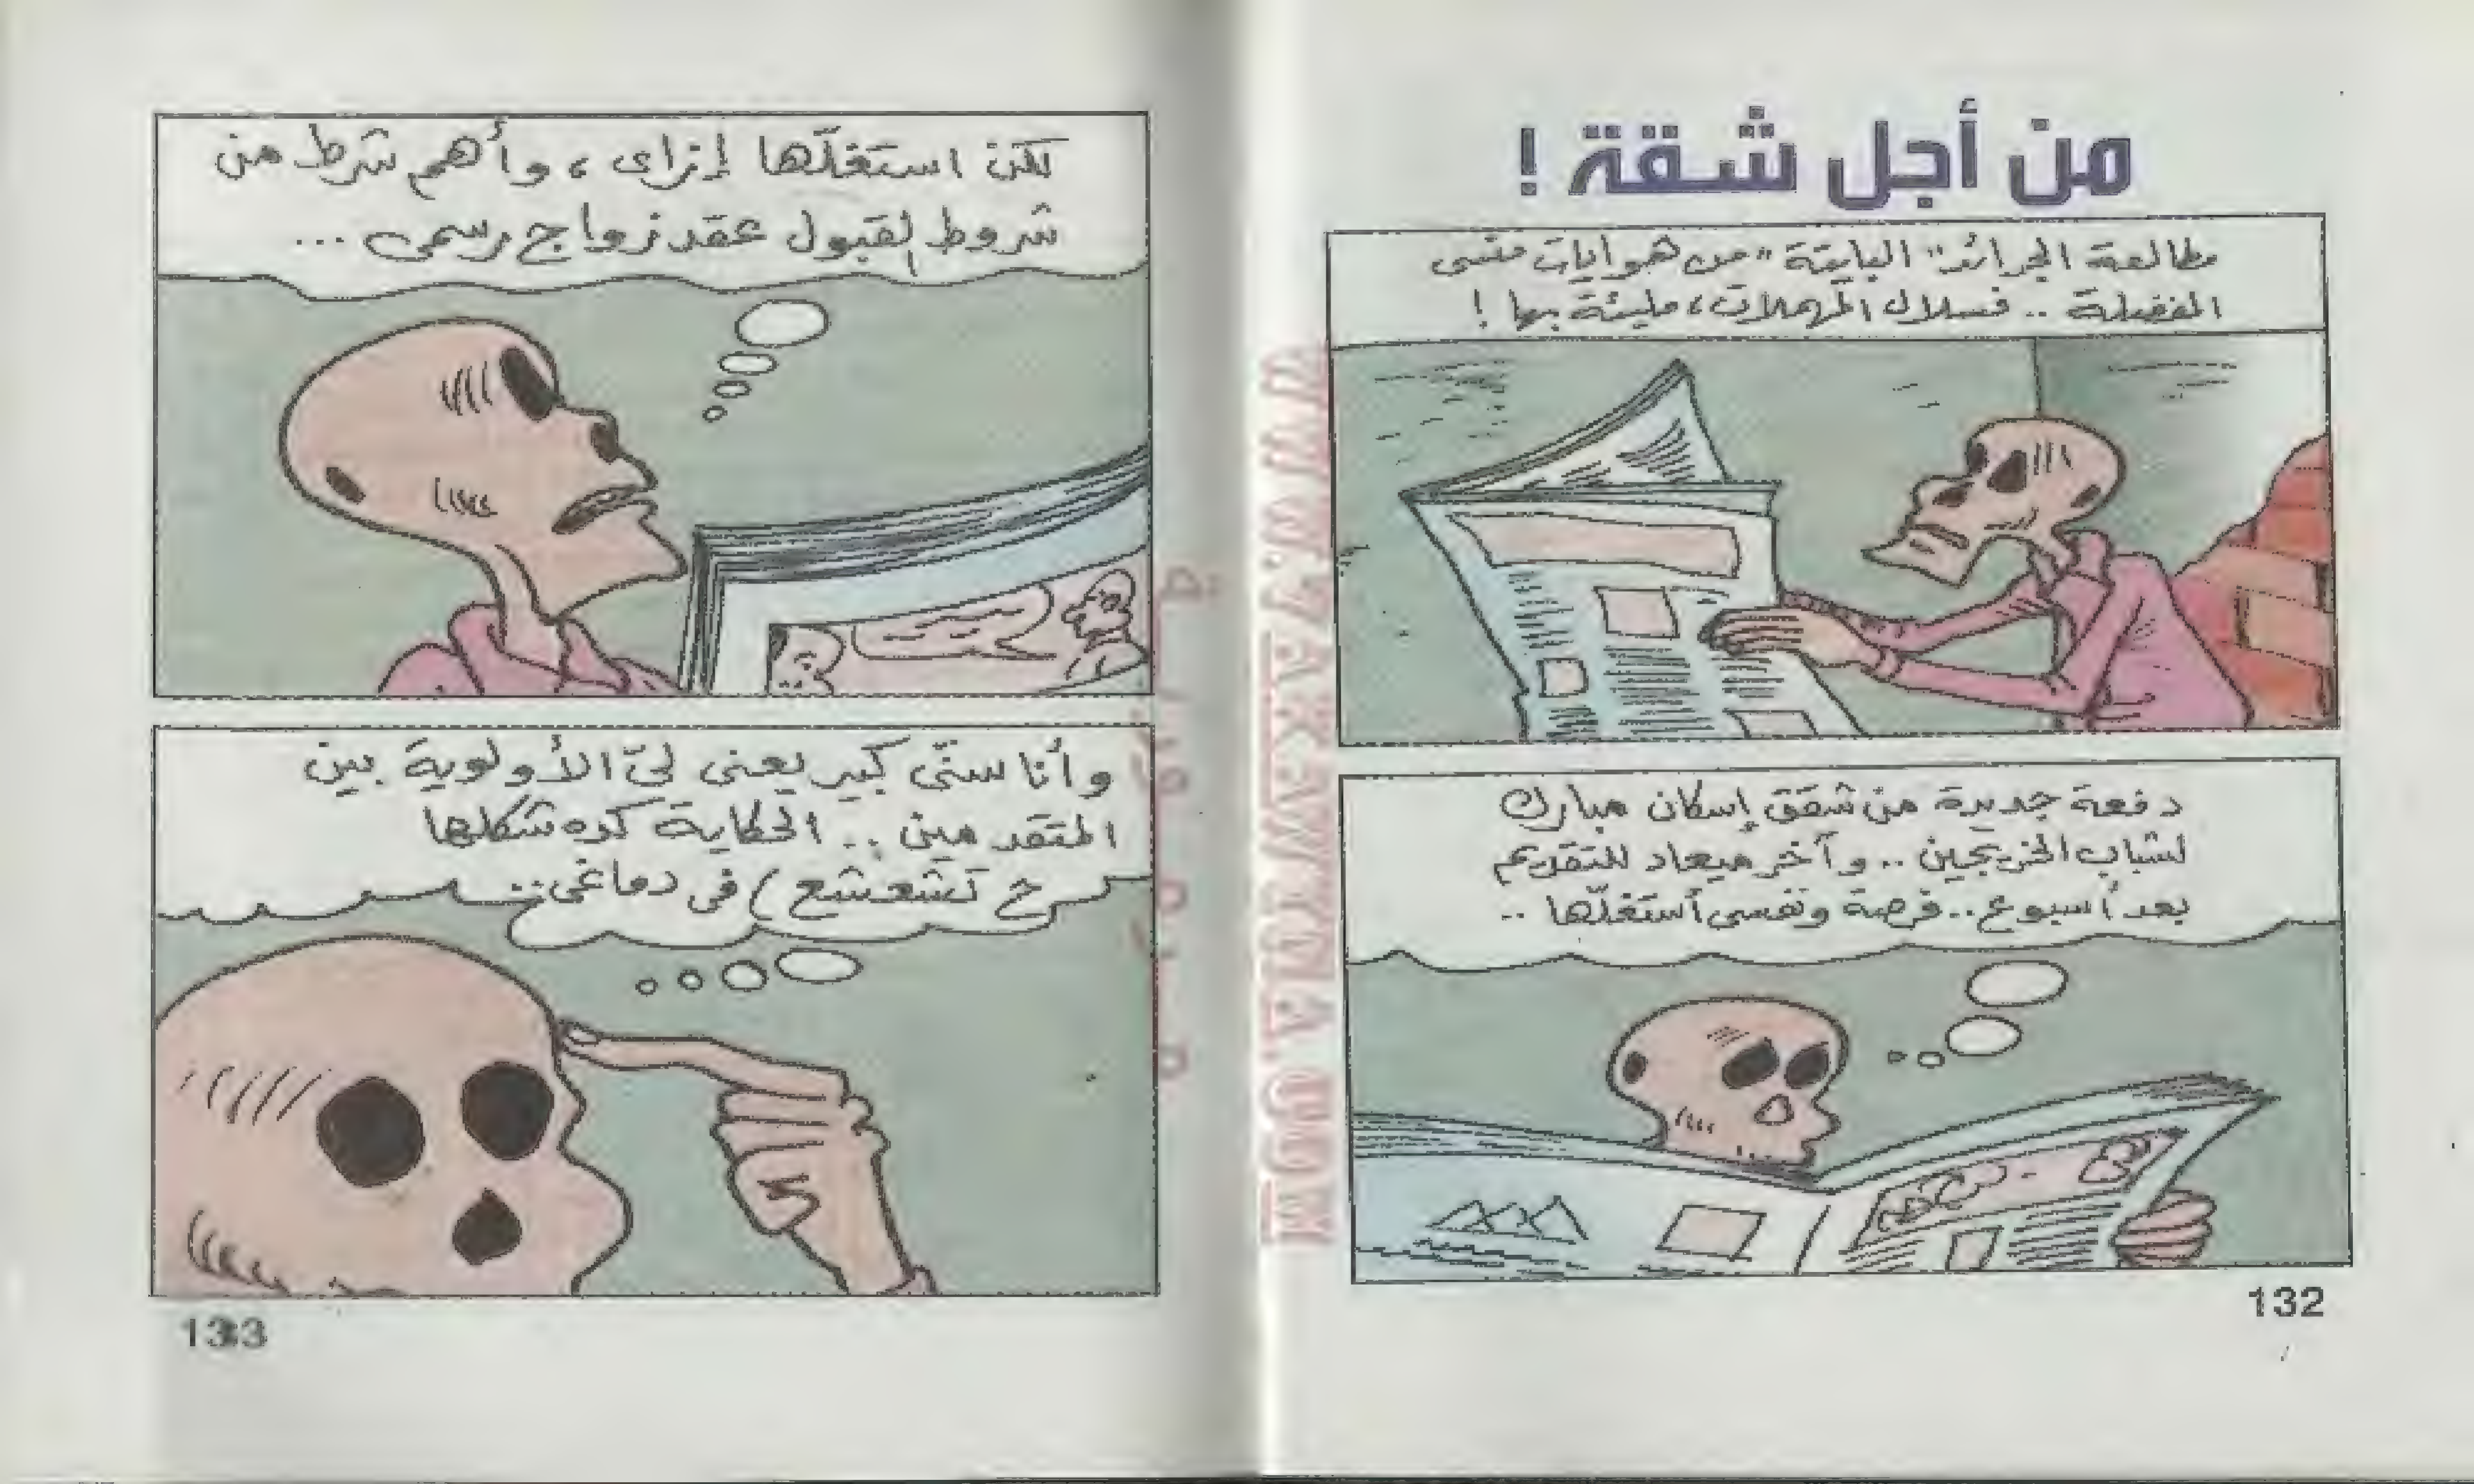 من أجل شقة !
مطالعة الجرائد "البايتة" من هوايات منسى
المفضلة .. فسلال المهملات، مليئة بها !
دفعة جديدة من شقق إسكان مبارك
لشباب الخريجين .. وآخر ميعاد للتقديم
بعد أسبوع .. فرصة ونفسى أستغلّها ..
132
لكن استغلّها إزاى ، وأهم شرط من
شروط القبول عقد زواج رسمى ...
وأنا سنّى كبير يعنى لىّ الأولوية بين
المتقدمين .. الحكاية كده شكلها
ح تشعشع) فى دماغى ..
133
WWW.ARABCOMICS.NET